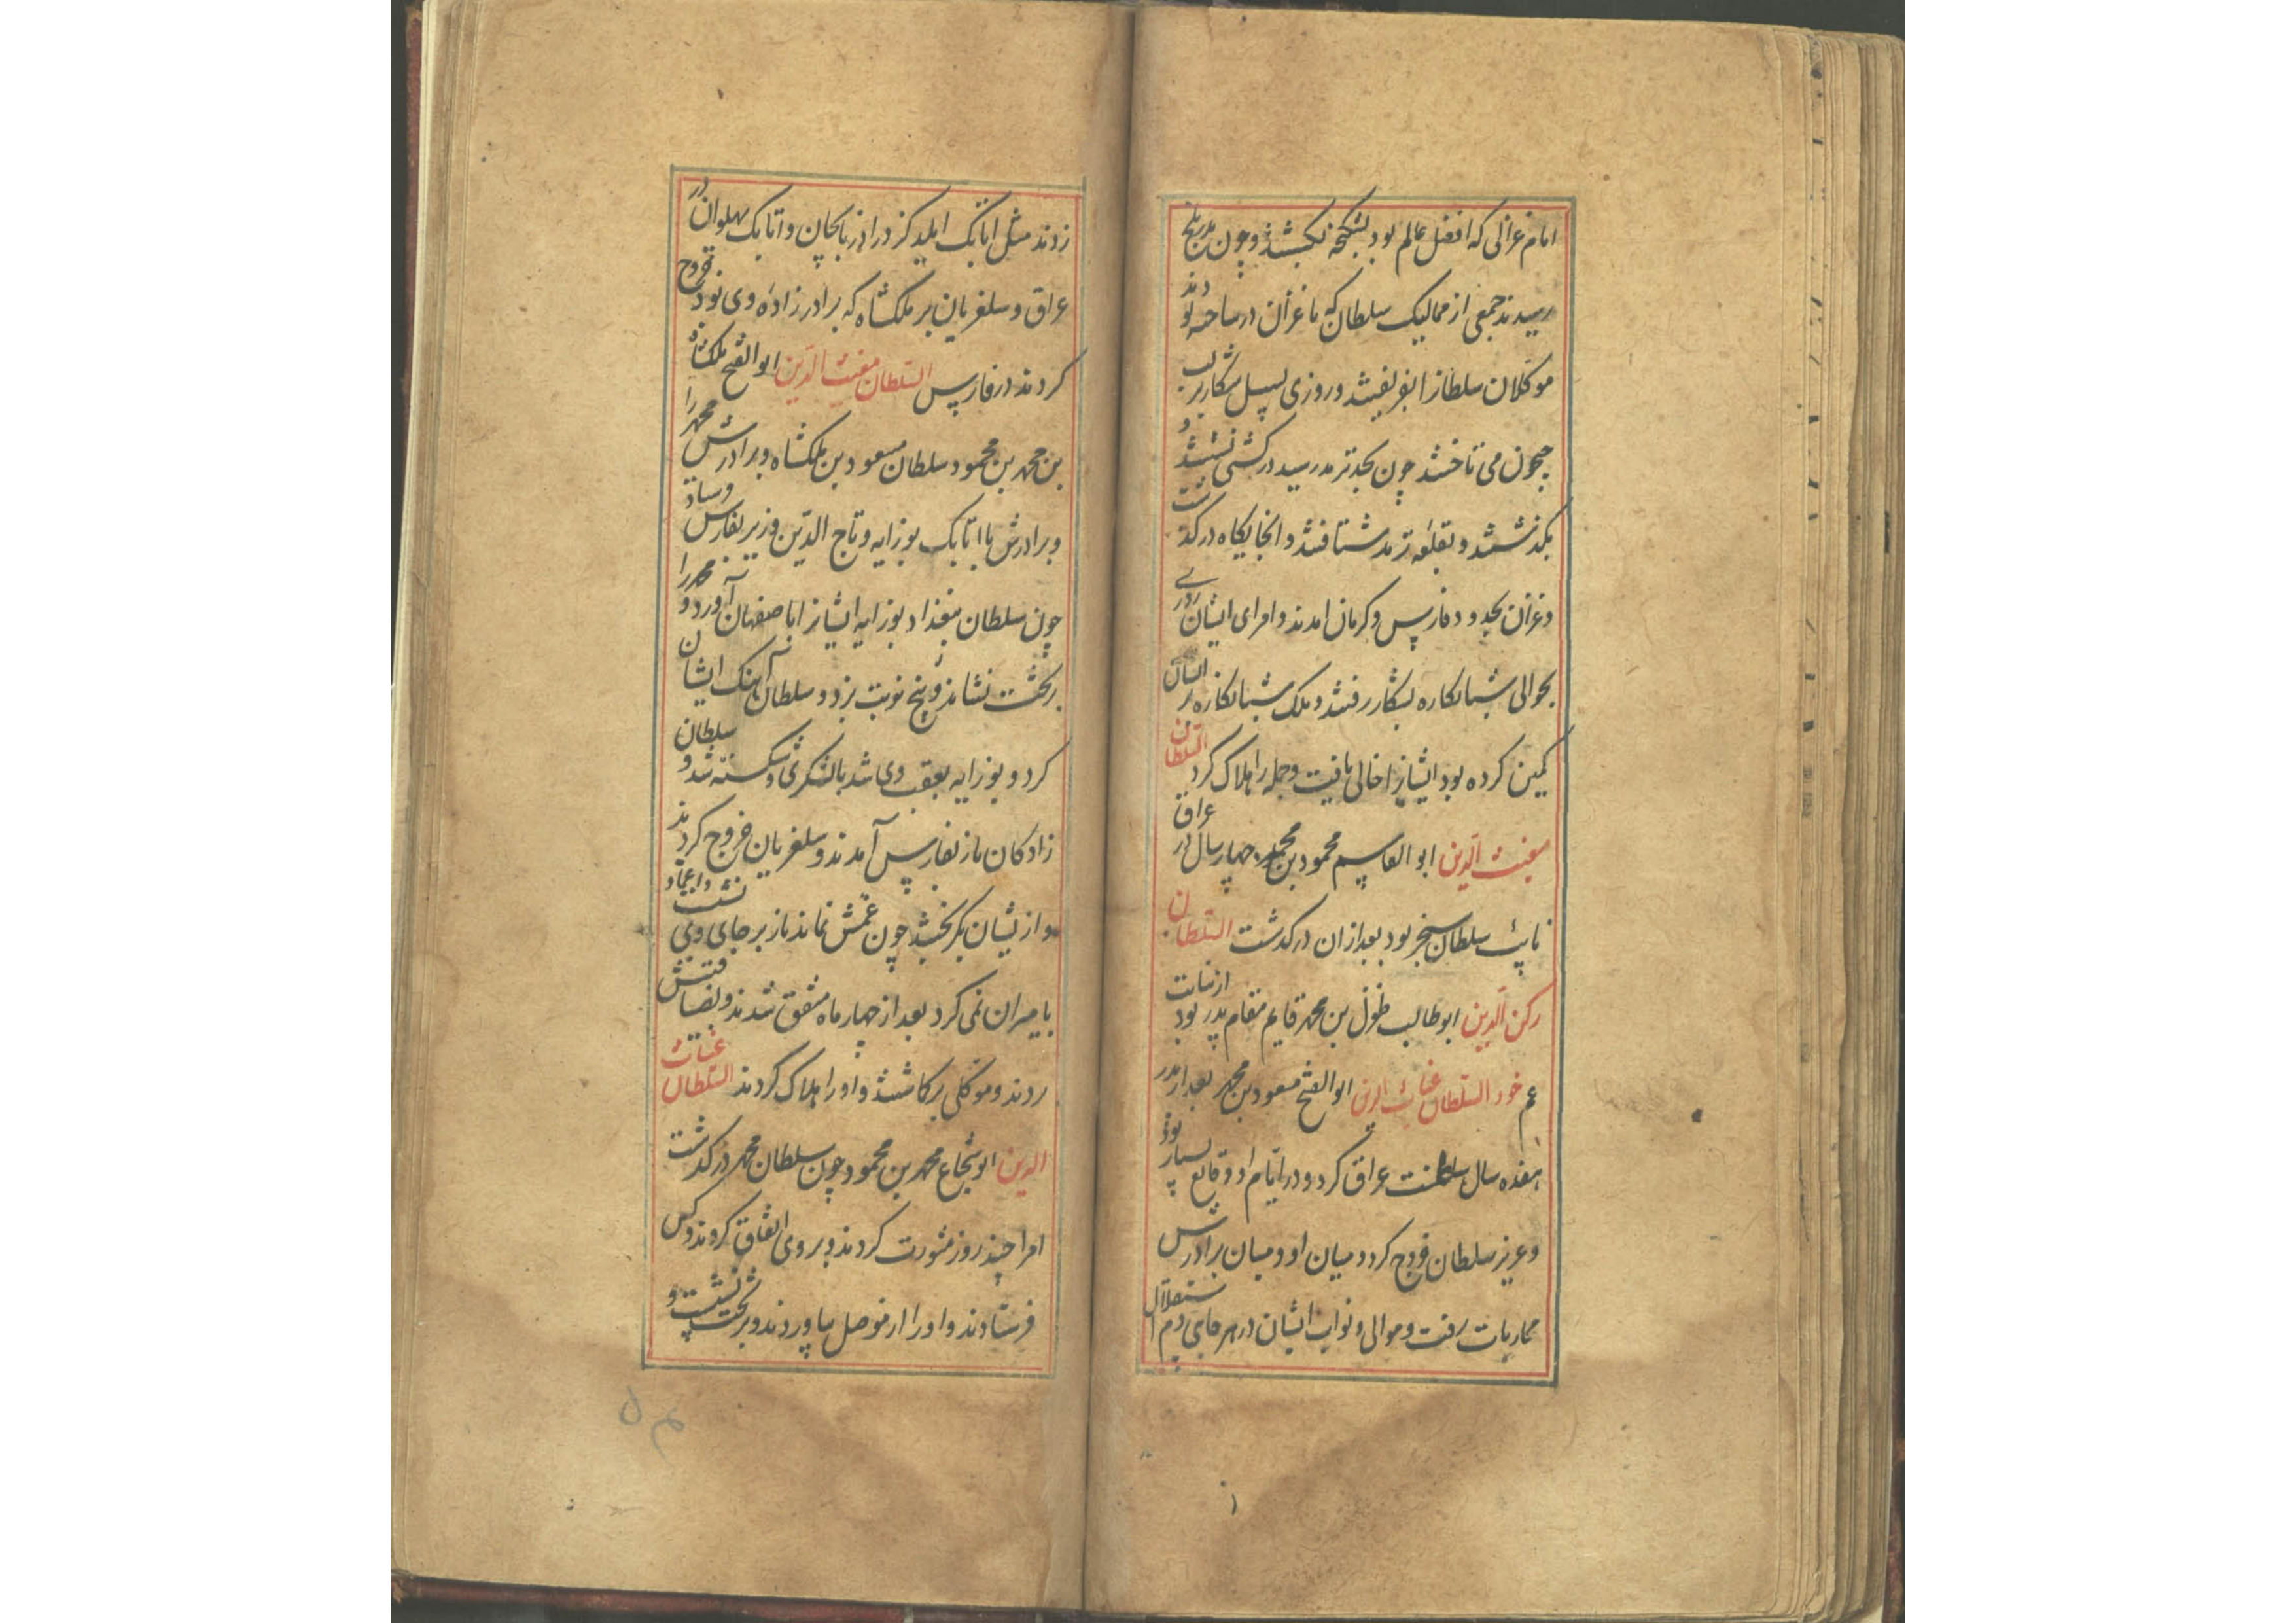 امام غزالی که افضل عالم بود بشکنجه بکشتند و چون ببلخ
رسیدند جمعی از ممالیک سلطان که با غزان در ساخته بودند
موکلان سلطان را بفریفتند و روزی بسبیل شکار بر لب
جیحون می تاختند چون بحد ترمد رسید در کشتی نشستند و
بگذشتند و بقلعه ترمد شتافتند و انجایکاه درکذشت
و غزان بحدود فارس و کرمان امدند و امرای ایشان روزی
بحوالی شبانکاره بشکار رفتند و ملک شبانکاره بر ایشان
کمین کرده بود ایشانرا خالی یافت و جمله را هلاک کرد السلطان
مغیث الدین ابو القاسم محمود بن محمد چهار سال در عراق
نایب سلطان سنجر بود بعد ازان درکذشت السلطان
رکن الدین ابو طالب طغرل بن محمد قایم مقام پدر بود از نیابت
عم خود السلطان غیاث الدین ابو الفتح مسعود بن محمد بعد از پدر
هفده سال سلطنت عراق کرد و در ایام او وقایع بسیار بود
و عزیز سلطان خروج کرد و میان او و میان برادرش
محاربات رفت و موالی و نواب ایشان در هر جایی دم استقلال
زدند مثل اتابک ایلدکز در اذربایجان و اتابک پهلوان در
عراق و سلغریان بر ملکشاه که برادر زاده وی بود خروج
کردند در فارس السلطان مغیث الدین ابو الفتح ملکشاه
بن محمد بن محمود سلطان مسعود بن ملکشاه و برادرش محمد را
و برادرش با اتابک بوزابه و تاج الدین وزیر بفارس فرستاد
چون سلطان ببغداد بوزابه ایشانرا باصفهان آورد و محمد را
بر تخت نشاند و پنج نوبت بزد و سلطان آهنک ایشان
کرد و بوزابه بعقب وی شد بالشکری و شکسته شد و سلطان
زادکان باز بفارس آمدند و سلغریان خروج کردند
و ازیشان بکریختند چون عمش نماند باز بر جای وی نشست و اعتماد
بامیران نمی کرد بعد از چهار ماه متفق شدند و بضیافتش
بردند و موکلی برکاشتند و او را هلاک کردند السلطان غیاث
الدین ابو شجاع محمد بن محمود چون سلطان محمد درکذشت
امرا چند روز مشورت کردند و بر وی اتفاق کردند و کس
فرستادند و او را از موصل بیاوردند و بر تخت نشست و